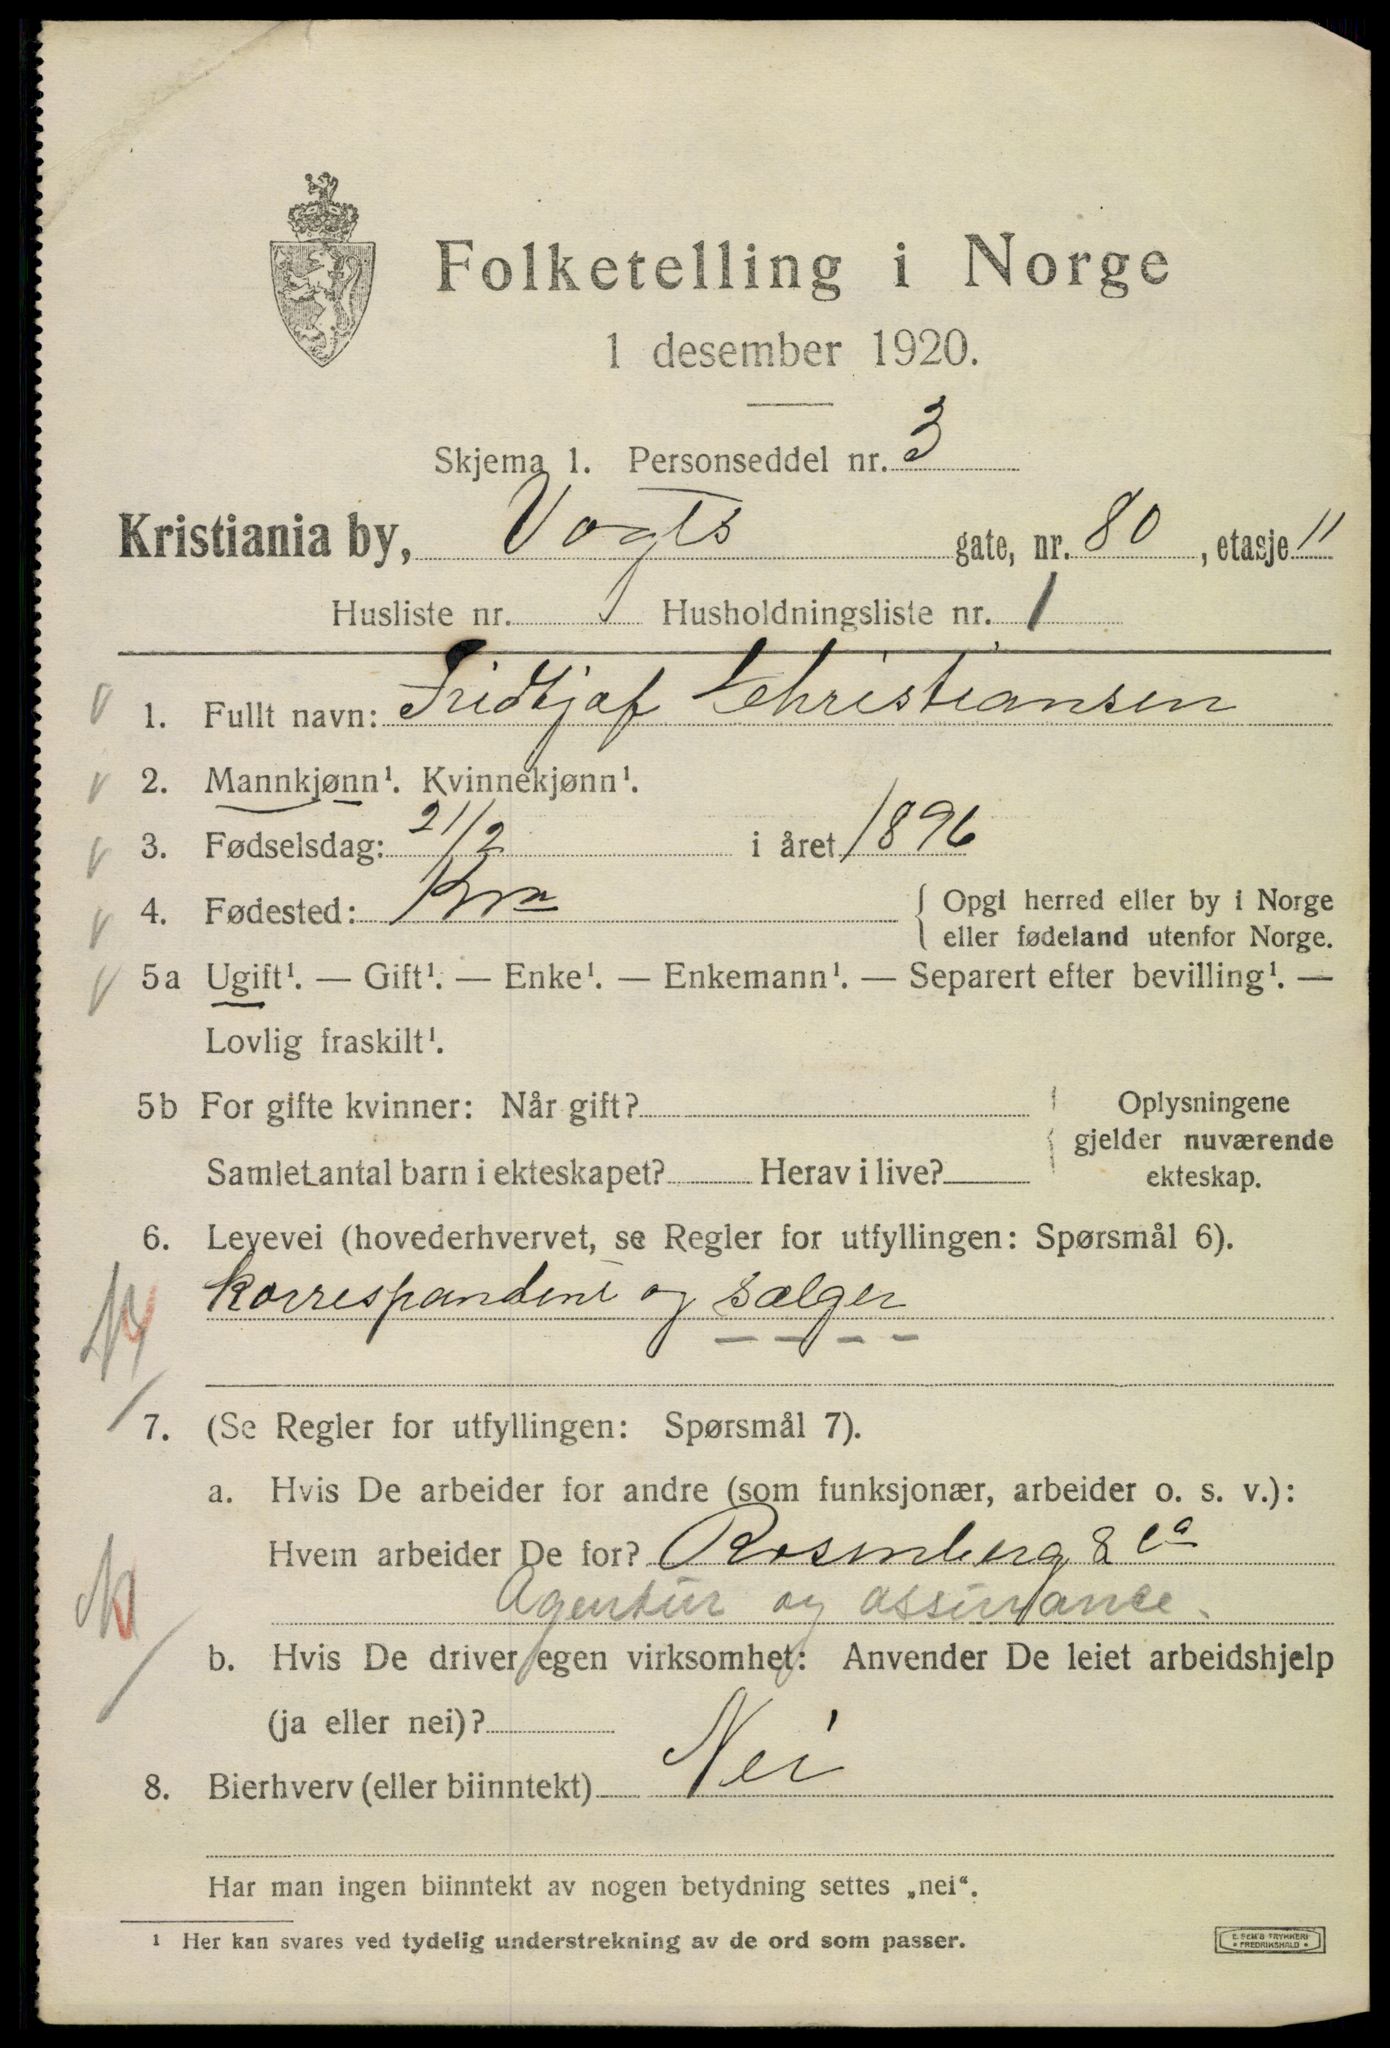 Folketelling i Norge
1 desember 1920.
Skjema 1. Personseddel nr. 3
Kristiania by, Vogts gate, nr. 80, etasje 11
Husliste nr. Husholdningsliste nr. 1
1. Fullt navn: Fridtjof Christiansen
2. Mannkjønn¹. Kvinnekjønn¹.
3. Fødselsdag: 21/2 i året 1896
4. Fødested: Kra { Opgi herred eller by i Norge
eller fødeland utenfor Norge.
5a Ugift¹. — Gift¹. — Enke¹. — Enkemann¹. — Separert efter bevilling¹. —
Lovlig fraskilt¹.
5b For gifte kvinner: Når gift? { Oplysningene
gjelder nuværende
Samlet antal barn i ekteskapet? Herav i live? ekteskap.
6. Levevei (hovederhvervet, se Regler for utfyllingen: Spørsmål 6).
korrespandent og sælger
7. (Se Regler for utfyllingen: Spørsmål 7).
a. Hvis De arbeider for andre (som funksjonær, arbeider o. s. v.):
Hvem arbeider De for? Rosenberg & Co
Agentur og assurance.
b. Hvis De driver egen virksomhet: Anvender De leiet arbeidshjelp
(ja eller nei)?
8. Bierhverv (eller biinntekt) Nei
Har man ingen biinntekt av nogen betydning settes „nei“.
¹ Her kan svares ved tydelig understrekning av de ord som passer.
E. SEM'S TRYKKERI
• FREDRIKSHALD •